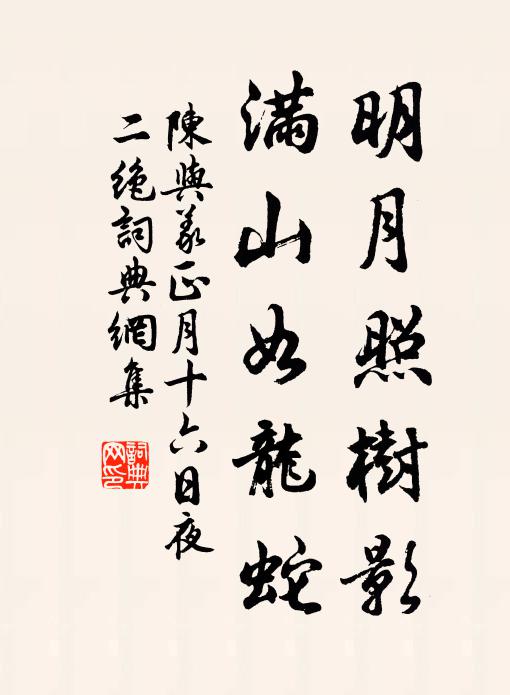 明月照樹影
滿山如龍蛇
陳與義正月十六日夜
二絶詞典網集
詞典
网印